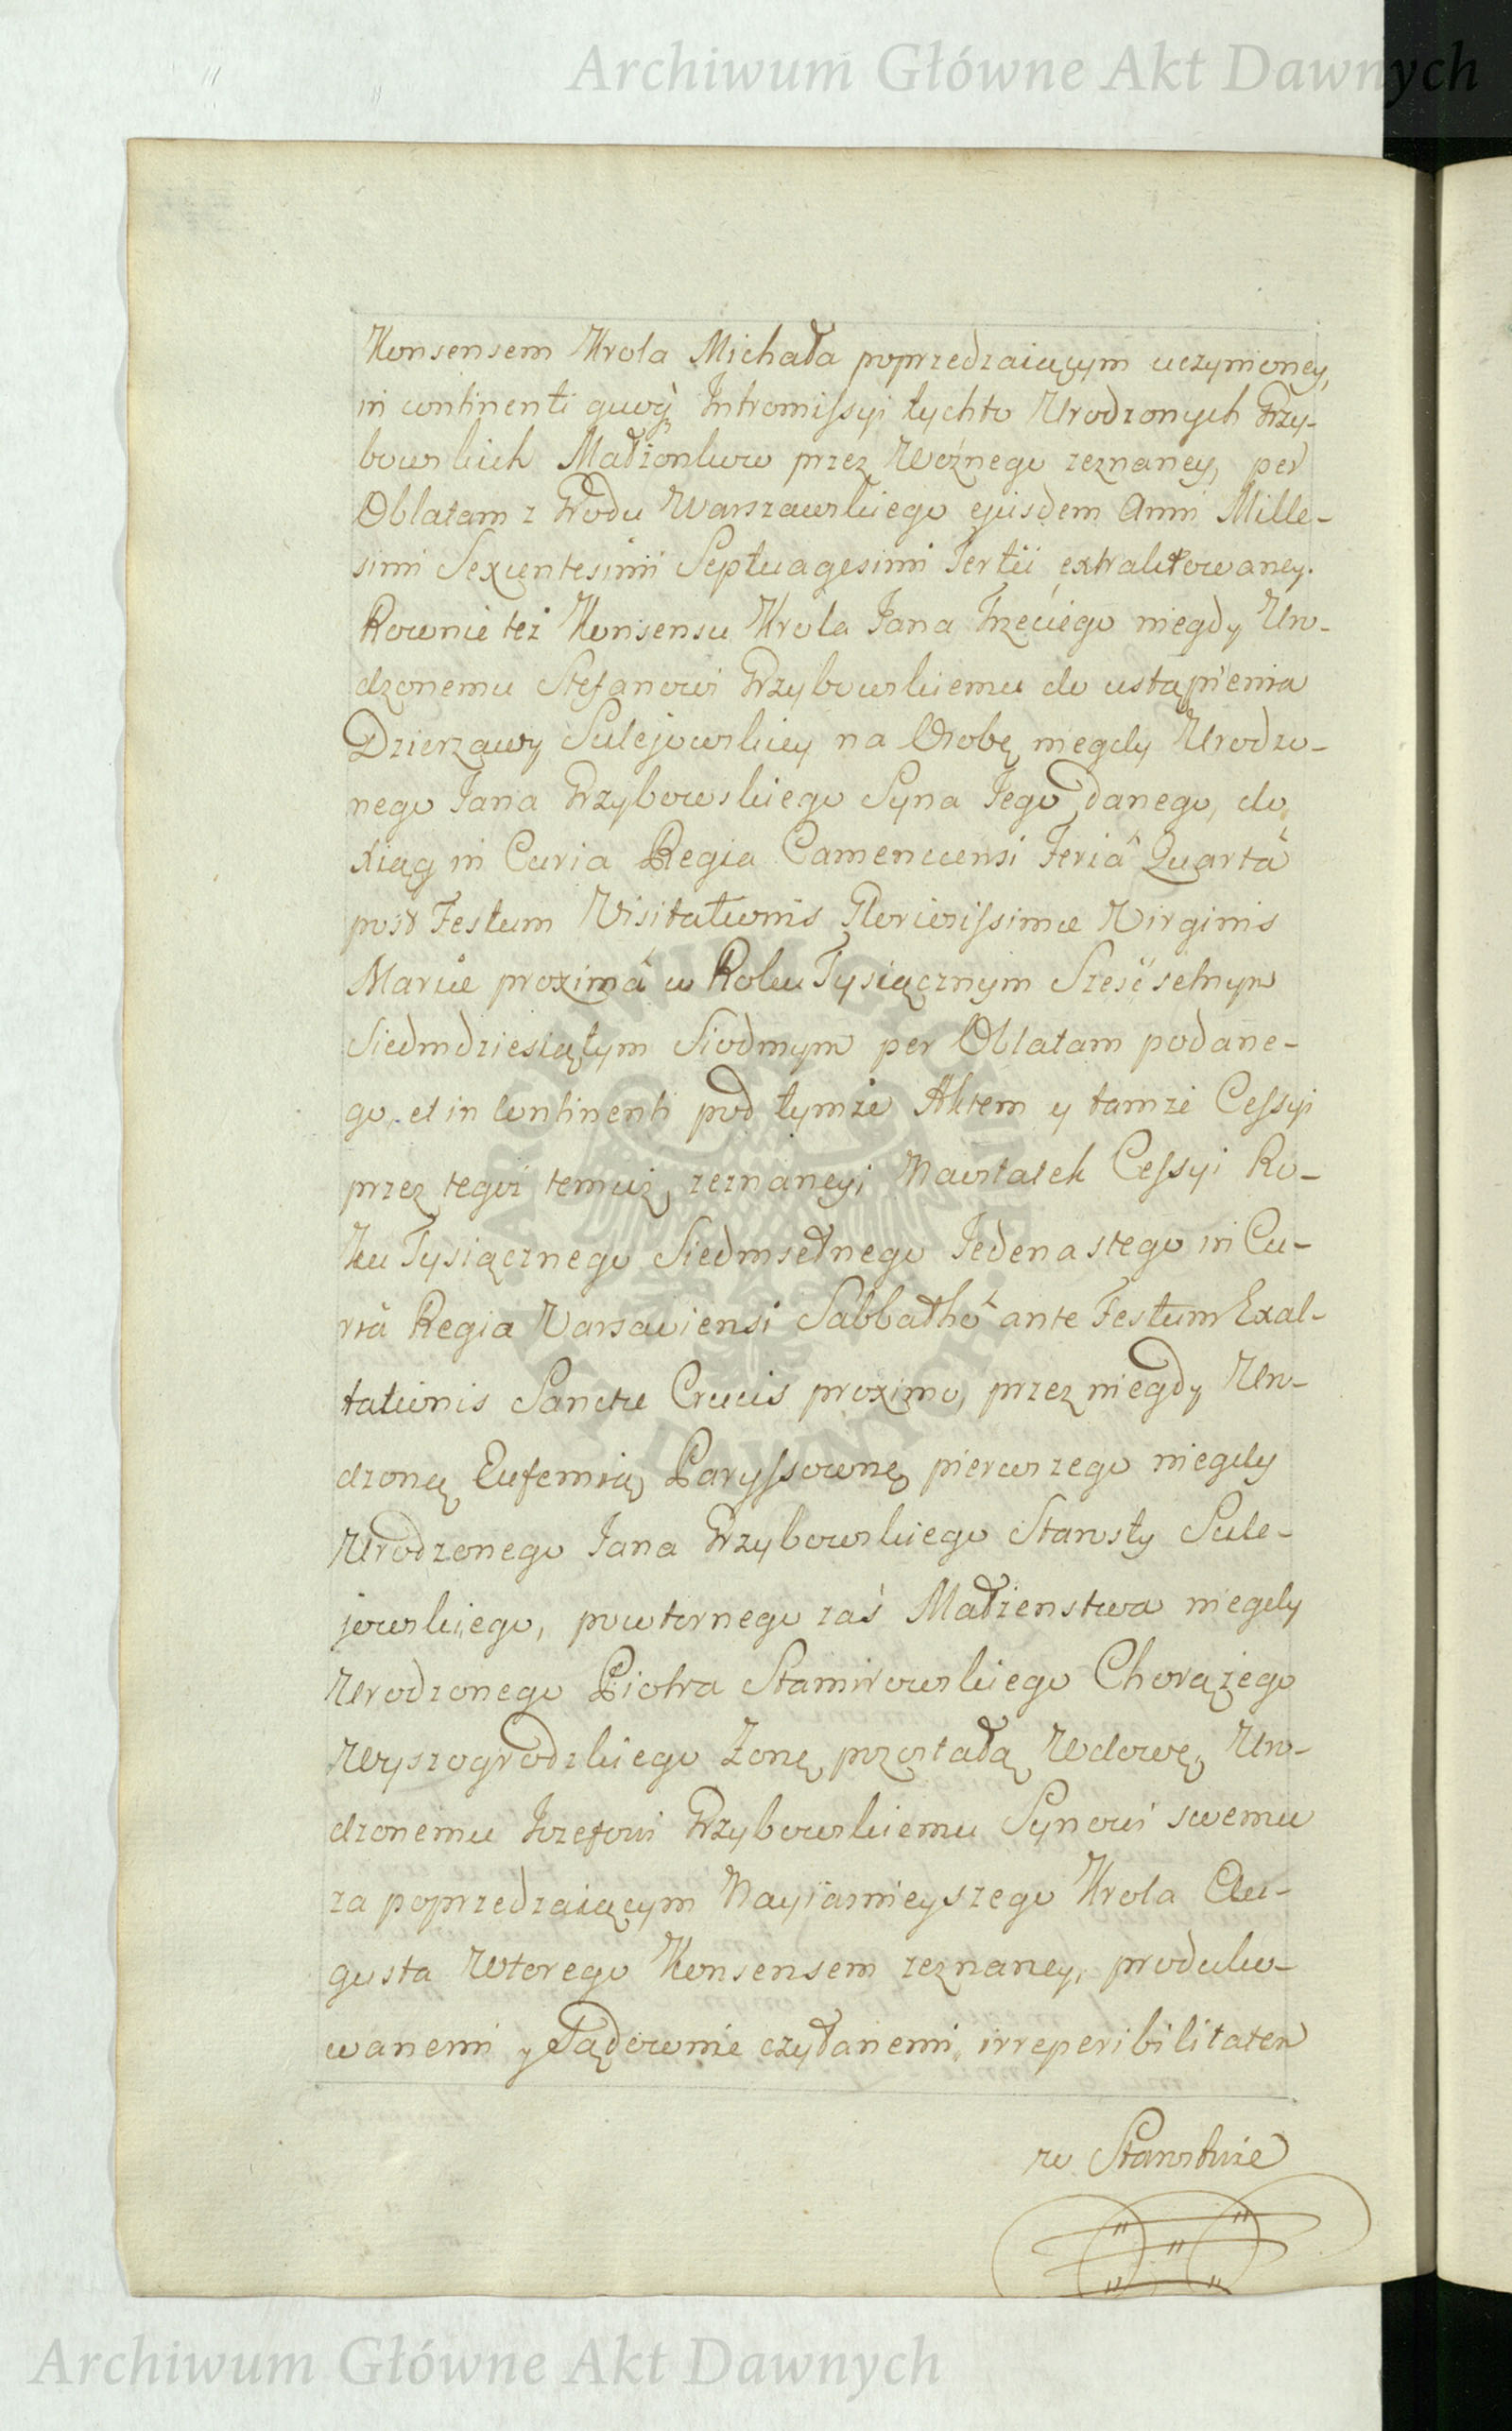 Archiwum Główne Akt Dawnych
Konsensem Krola Michała poprzedzaiącym uczynioney,
in continenti quoq; Intromissyi tychto Urodzonych Grzy-
bowskich Małżonkow przez Woźnego zeznaney, per
Oblatam z Grodu Warszawskiego ejusdem Anni Mille-
simi Sexcentesimi Septuagesimi Tertii extraktowaney.
Rownie też Konsensu Krola Jana Trzeciego niegdy Uro-
dzonemu Stefanowi Grzybowskiemu do ustąpienia
Dzierzawy Sulejowskiey na Osobę niegdy Urodzo-
nego Jana Grzybowskiego Syna Jego danego, do
xiąg in Curia Regia Camenecensi Feriâ Quartâ
post Festum Visitationis Gloriosissimæ Virginis
Mariæ proximâ w Roku Tysiącznym Sześćsetnym
Siedmdziesiątym Siodmym per Oblatam podane-
go, et in continenti pod tymże Aktem y tamże Cessyi
przez tegoż temuż, zeznaney; Nawstatek Cessyi Ro-
ku Tysiącznego Siedmsetnego Jedenastego in Cu-
riâ Regia Varsaviensi Sabbathô ante Festum Exal-
tationis Sanctæ Crucis proximo, przez niegdy Uro-
dzoną Eufemią Paryssownę pierwszego niegdy
Urodzonego Jana Grzybowskiego Starosty Sule-
jowskiego, powtornego zaś Małżenstwa niegdy
Urodzonego Piotra Stamirowskiego Chorążego
Wyszogrodzkiego Żonę, pozostałą Wdowę, Uro-
dzonemu Jozefowi Grzybowskiemu Synowi swemu
za poprzedzaiącym Nayiasnieyszego Krola Au-
gusta Wtorego Konsensem zeznaney, produko-
wanemi y Sądownie czytanemi, irreperibilitatem
w Starostwie
Archiwum Główne Akt Dawnych